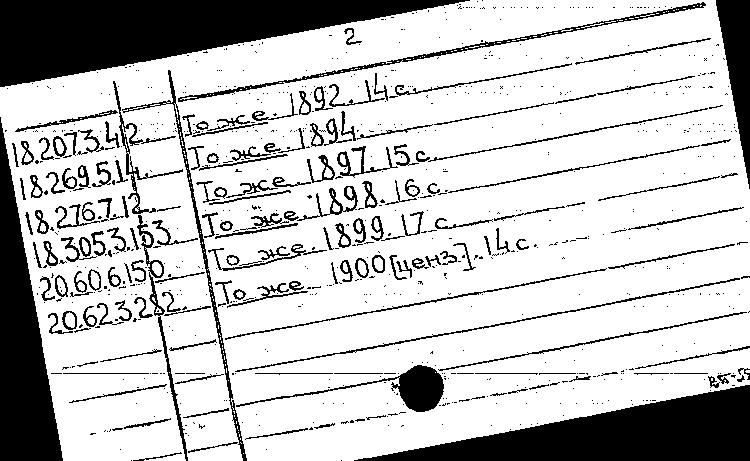 2
18.207.3.412. То же. 1892. 14 с.
18.269.5.14. То же. 1894.
18.276.7.12. То же. 1897. 15 с.
18.305.3.153. То же. 1898. 16 с.
20.60.6.150. То же. 1899. 17 с.
20.62.3.282. То же. 1900 [ценз.]. 14 с.